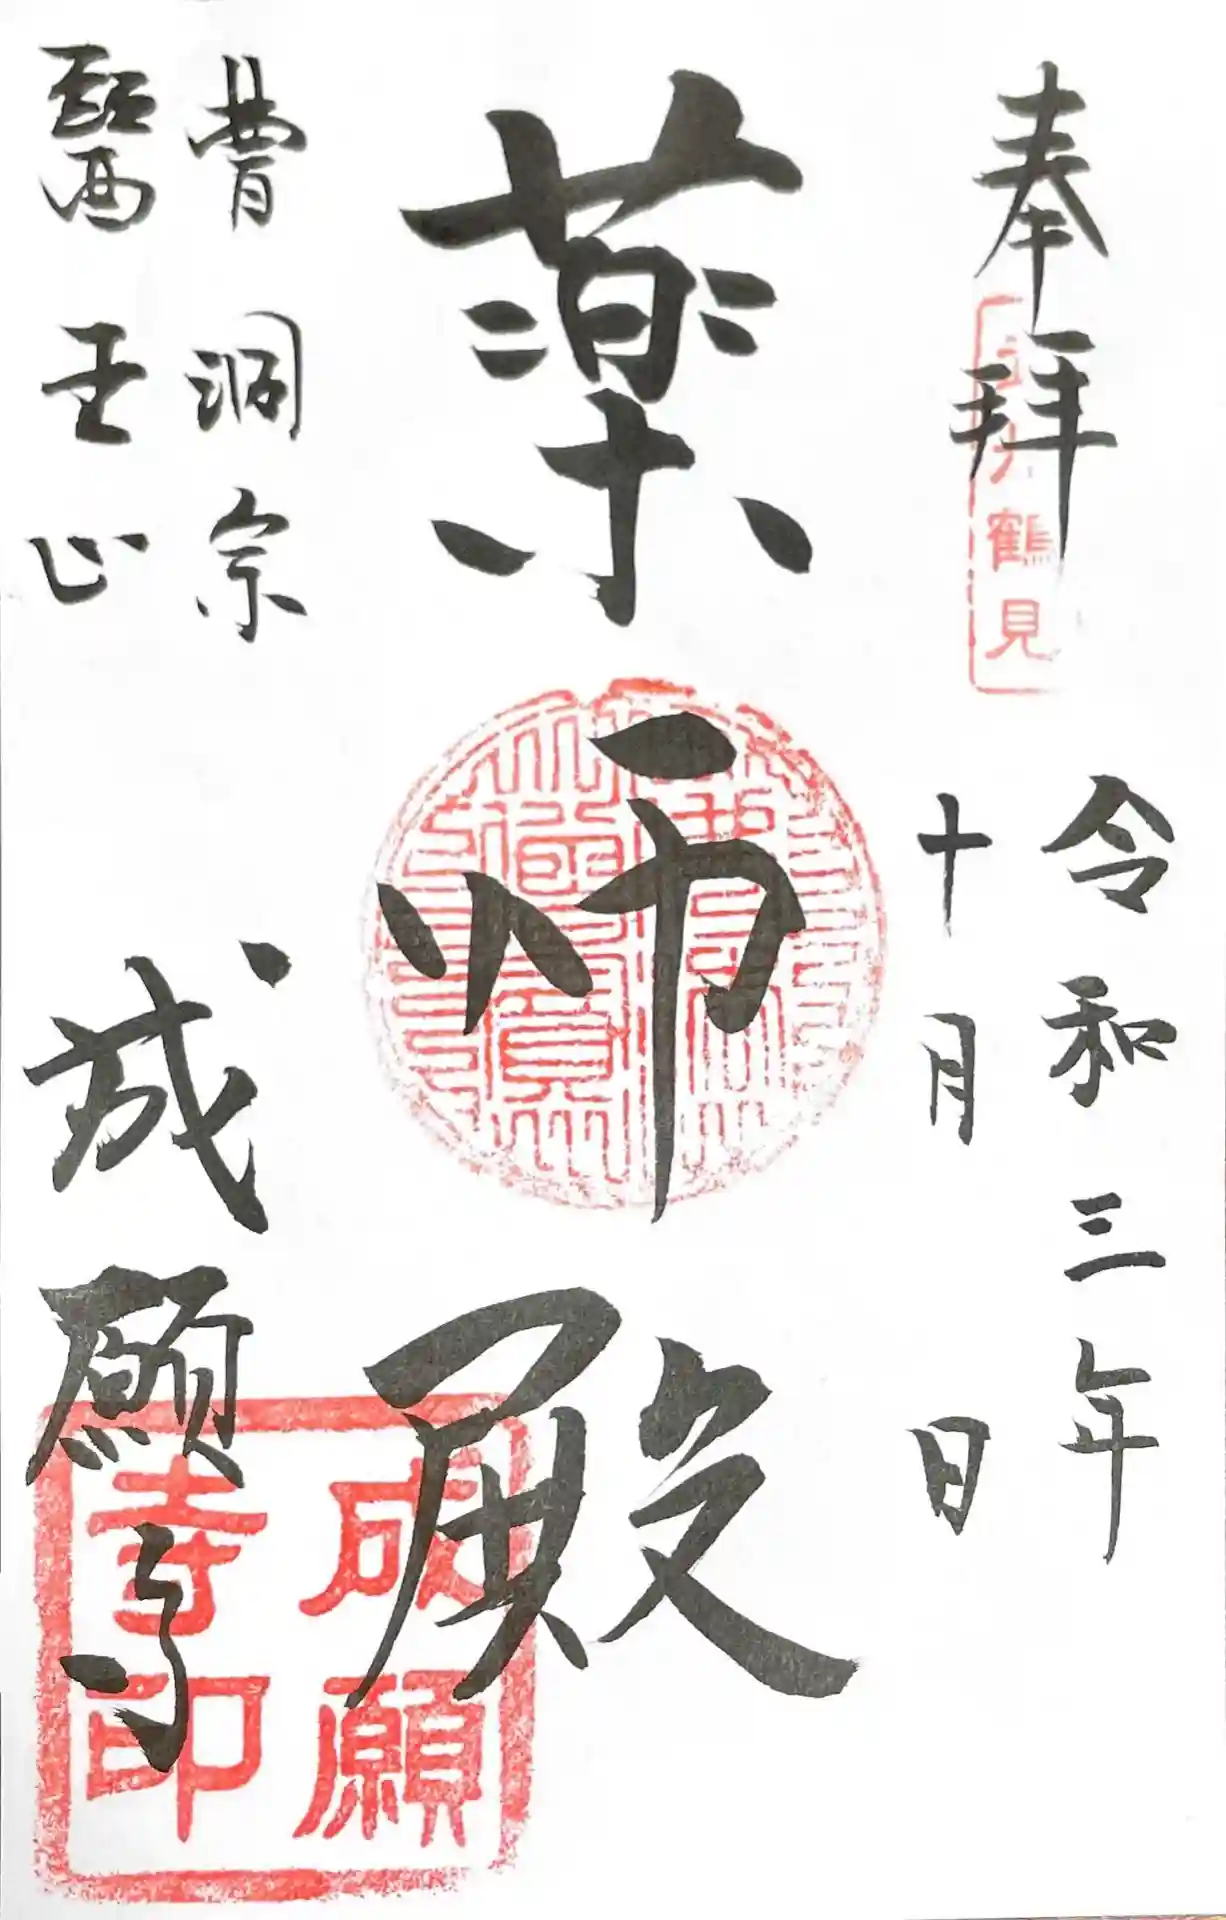 奉拝
鶴見
令和三年
十月 日
薬師殿
曹洞宗
醫王山
成願寺
成願寺印